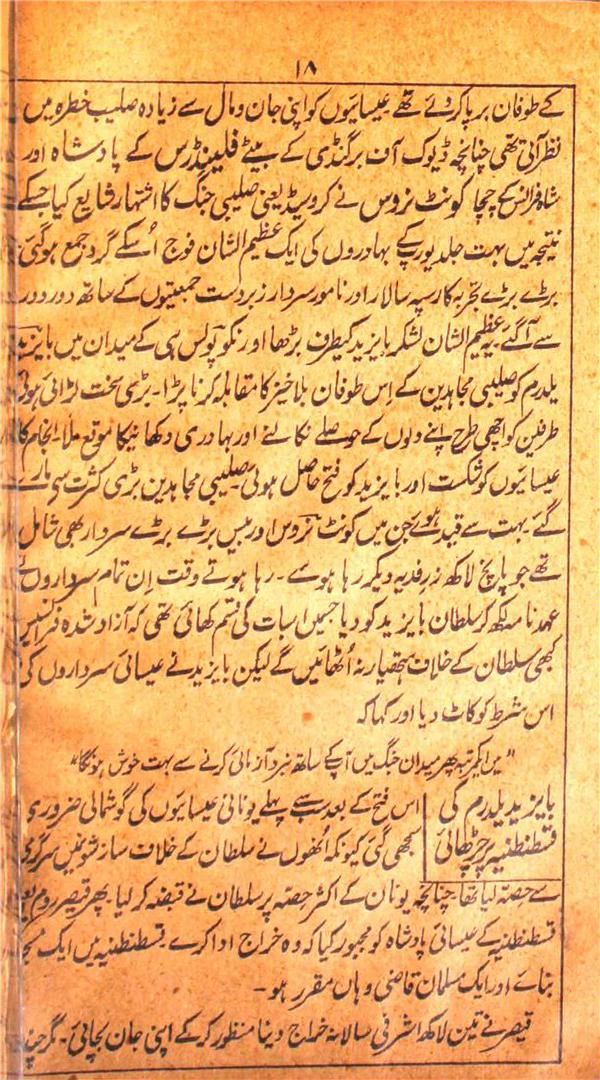 ۱۸
کے طوفان برپا کر دئے تھے عیسائیوں کو اپنی جان و مال سے زیادہ صلیب خطرہ میں
نظر آتی تھی چنانچہ ڈیوک آف برگنڈی کے بیٹے فلینڈرس کے پادشاہ اور
شاہ فرانس کے چچا کونٹ نروس نے کروسیڈ یعنی صلیبی جنگ کا اشتہار شایع کیا جسکے
نتیجہ میں بہت جلد یورپ کے بہادروں کی ایک عظیم الشان فوج اُسکے گرد جمع ہوگئی
بڑے بڑے تجربہ کار سپہ سالار اور نامور سردار زبردست جمعیتوں کے ساتھ دور دور
سے آگئے۔ یہ عظیم الشان لشکر بایزید کیطرف بڑھا اور نکوپولس ہی کے میدان میں بایزید
یلدرم کو صلیبی مجاہدین کے اِس طوفان بلاخیز کا مقابلہ کرنا پڑا۔ بڑی سخت لڑائی ہوئی
طرفین کو اچھی طرح اپنے دلوں کے حوصلے نکالنے اور بہادری دکھانیکا موقع ملا۔ انجام کار
عیسائیوں کو شکست اور بایزید کو فتح حاصل ہوئی۔ صلیبی مجاہدین بڑی کثرت سے مارے
گئے بہت سے قید ہوئے جن میں کونٹ نروس اور بیس بڑے بڑے سردار بھی شامل
تھے جو پانچ لاکھ زر فدیہ دیکر رہا ہوئے۔ رہا ہوتے وقت اِن تمام سرداروں نے
عہد نامہ لکھ کر سلطان بایزید کو دیا جسمیں اسبات کی قسم کھائی تھی کہ آزاد شدہ فرانسیسی
کبھی سلطان کے خلاف ہتھیار نہ اُٹھائیں گے لیکن بایزید نے عیسائی سرداروں کی
اس شرط کو کاٹ دیا اور کہا کہ
"میں ایکمرتبہ پھر میدان جنگ میں آپکے ساتھ نبرد آزمائی کرنے سے بہت خوش ہونگا"
بایزید یلدرم کی
قسطنطنیہ پر چڑھائی
اس فتح کے بعد سب سے پہلے یونانی عیسائیوں کی گوشمالی ضروری
سمجھی گئی کیونکہ اُنھوں نے سلطان کے خلاف سازشونمیں سرگرمی
سے حصہ لیا تھا۔ چنانچہ یونان کے اکثر حصہ پر سلطان نے قبضہ کر لیا۔ پھر قیصر روم یعنی
قسطنطنیہ کے عیسائی پادشاہ کو مجبور کیا کہ وہ خراج ادا کرے۔ قسطنطنیہ میں ایک
بنائے اور ایک مسلمان قاضی وہاں مقرر ہو۔
قیصر نے تین لاکھ اشرفی سالانہ خراج دینا منظور کر کے اپنی جان بچائی۔ مگر